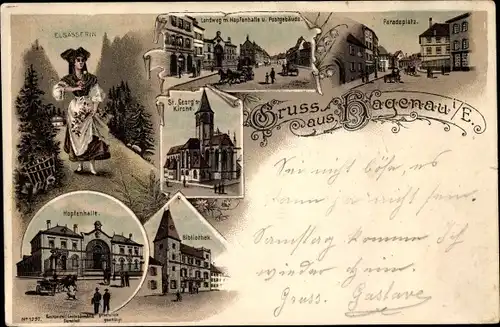 ELSÄSSERIN
Landweg m. Hopfenhalle u. Postgebäude.
Paradeplatz.
St. Georgs
Kirche.
Gruss
aus Hagenau i/E.
Hopfenhalle.
Bibliothek.
Sei nicht böse, es
kann ja nicht sein.
Samstag komme ich
wieder heim.
Gruss. Gustave